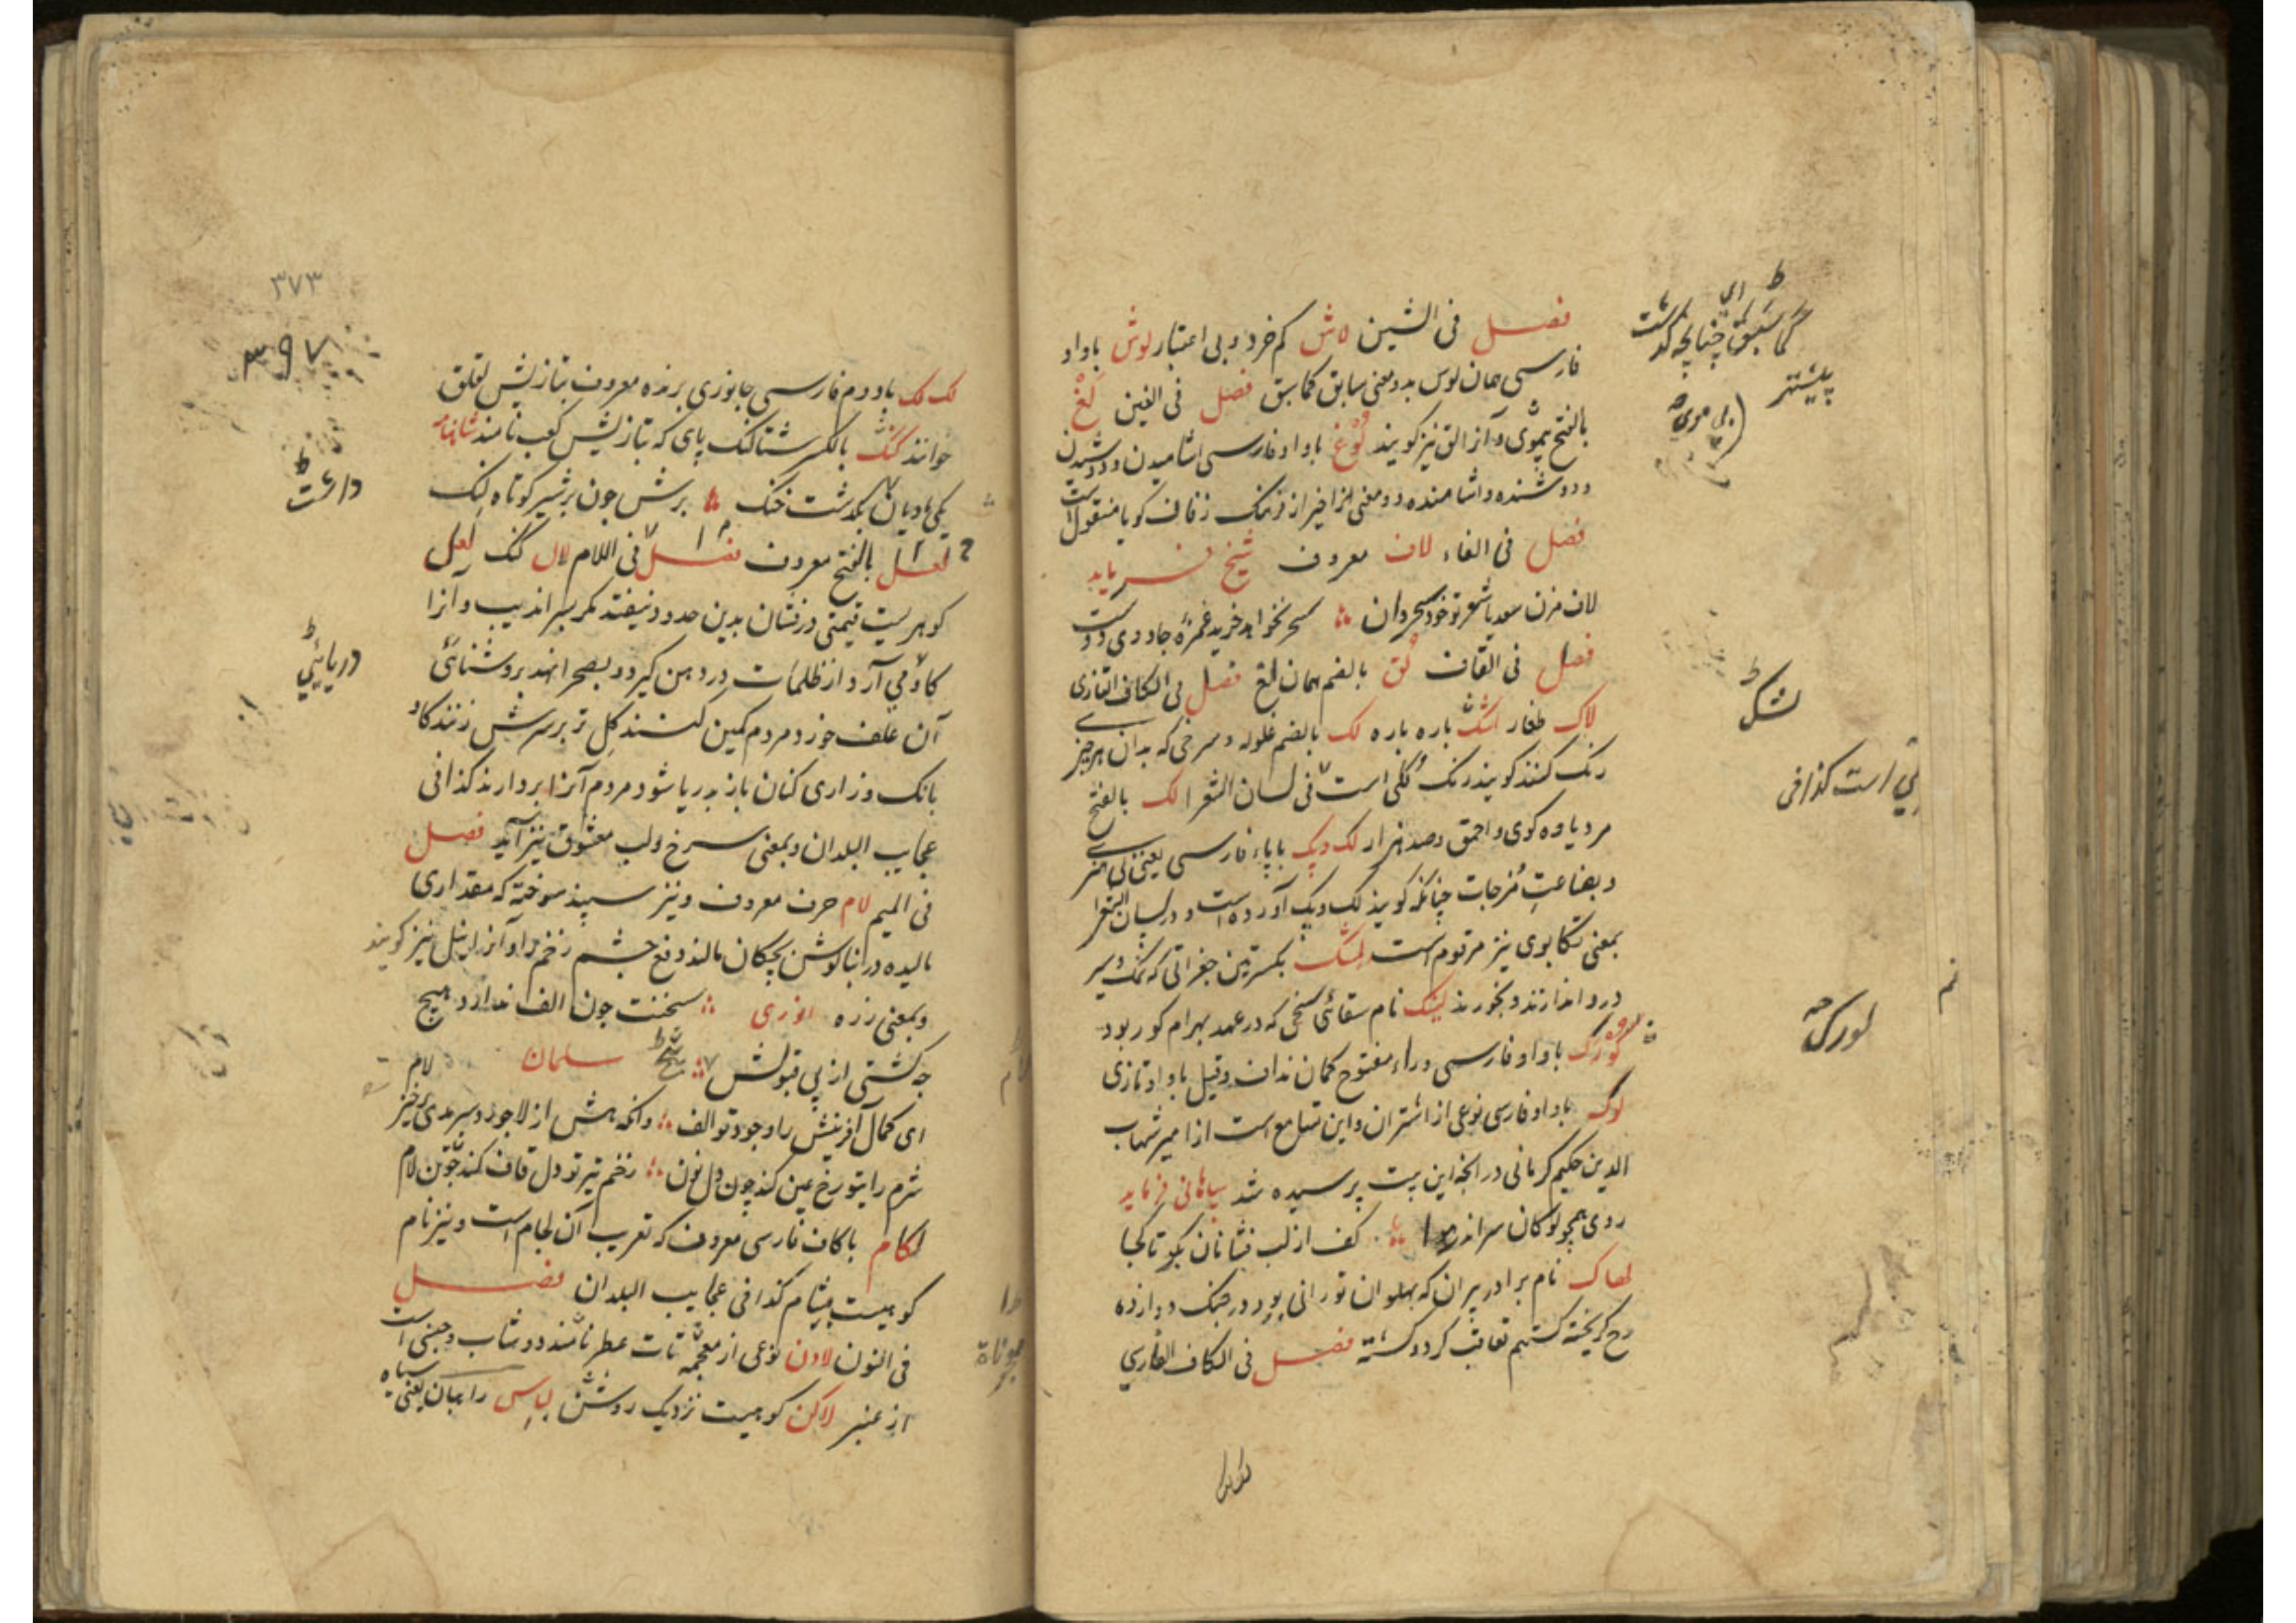 فصل فی الشین لاش کم خرد و بی اعتبار لوش باواو
فارسی همان لوس بدو معنی سابق کما سبق فصل فی الغین لغ
بالفتح بیموی و آنرا لق نیز کویند لوغ باواو فارسی اشامیدن و دوشیدن
و دوشنده و اشامنده و دو معنی اخیر از فرهنک زفان کویا منقول است
فصل فی الفاء لاف معروف شیخ فرماید
لاف مزن سعدیا شعر تو خود سحر دان سحر نخواهد خرید غمزه جادوی دوست
فصل فی القاف لق بالضم همان لغ فصل فی الکاف التازی
لاک طغار لشک باره باره لک بالضم غلوله و سرخی که بدان هر چیز
رنک کنند کویند رنک کلی است فی لسان الشعرا لک بالفتح
مرد یاوه کوی و احمق و صد هزار لک وپک باباء فارسی یعنی بی هنر
و بضاعت مزجات چنانکه کویند لک وپک آورده است و در لسان الشعرا
بمعنی تکاپوی نیز مرقوم است لشک بکسرتین جغراتی که نمک و شیر
درو اندازند و بخورند لنبک نام سقائی سخی که در عهد بهرام کور بود
لورک باواو فارسی و راء مفتوح کمان نداف وقیل باواو تازی
لوک باواو فارسی نوعی از اشتران و این تسامع است از امیر شهاب
الدین حکیم کرمانی در انچه این بیت پرسیده شد بیاهانی فرماید
روی همچو لوکان سراندر هوا کف از لب فشانان بکو تا کجا
لهاک نام برادر پیران که پهلوان تورانی بود در جنک دوازده
رخ کریخته کستهم تعاقب کرد و کشته فصل فی الکاف الفارسی
لکلک
کما سبق ای چنانچه کذشت
پیشتر
لشک
لی است کذا فی
لورک
۳۷۳
۳۹۷
لک لک باد و م فارسی جانوری پرنده معروف بتازیش لقلق
خوانند لنک بالکسر شتالنک پای که بتازیش کعب نامند شاهنامه
یکی مادیان بکذشت خنک برش چون بر شیر کوتاه لنک
لعل بالفتح معروف فصل فی اللام لال کنک لعل
کوهریست قیمتی درفشان بدین حدود نیفتد مکر سراندیب و آنرا
کاو می آرد از ظلمات در دهن کیرد و بصحرا نهد بروشنائی
آن علف خورد و مردم کمین کنند کل تر بر سرش زنند کاو
بانک و زاری کنان باز بدریا شود مردم آنرا بردارند کذا فی
عجایب البلدان و بمعنی سرخ و لب معشوق نیز آید فصل
فی المیم لام حرف معروف و نیز سپند سوخته که مقداری
مالیده در بناکوش بچکان مالند دفع چشم زخم را و آنرا نیل نیز کویند
و بمعنی زره انوری سخنت چون الف ندارد هیچ
چه کشی از پی قبولش لام سلمان
ای کمال آفرینش را وجود تو الف وانکه هش از لاجورد سرمدی بر خیز
شرم رایتو رخ عین کند چون دل نون زخم تیر تو دل قاف کند چون لام
لکام باکاف فارسی معروف که تعریب آن لجام است و نیز نام
کوهیست بشام کذا فی عجایب البلدان فصل
فی النون لادن نوعی از معجمه تات عطر مانند دوشاب و جنسی است
از عنبر لاکن کوهیست نزدیک روشن لباس راهبان یعنی سیاه
داشت
دریایی